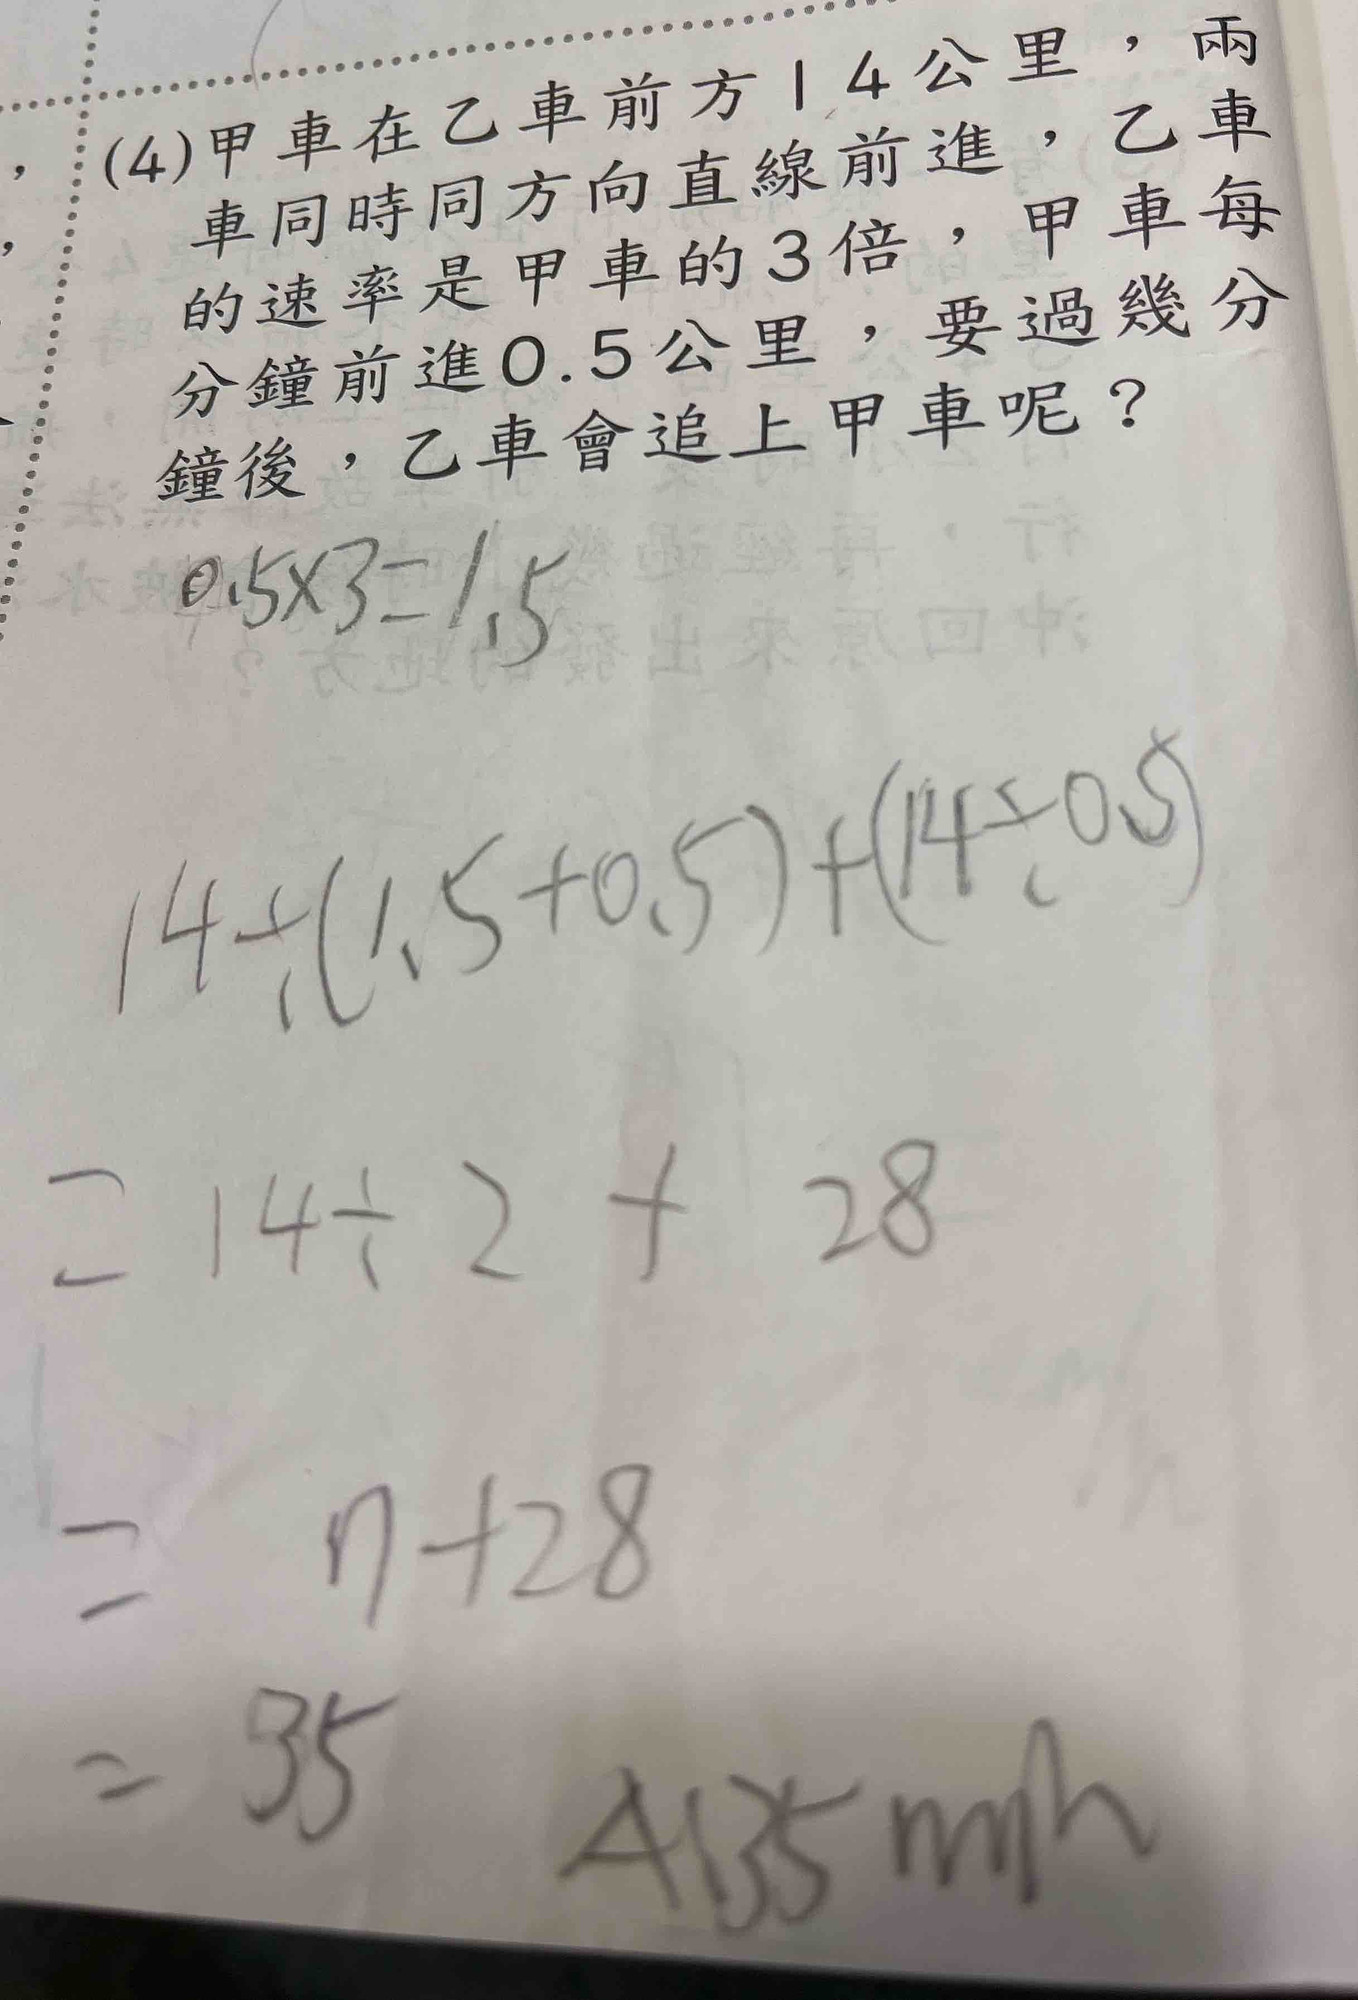 (4)甲車在乙車前方14公里，兩
車同時同方向直線前進，乙車
的速率是甲車的3倍，甲車每
分鐘前進0.5公里，要過幾分
鐘後，乙車會追上甲車呢？
0.5×3=1.5
14÷(1.5+0.5)+(14÷0.5)
=14÷2+28
=7+28
=35
A:35min